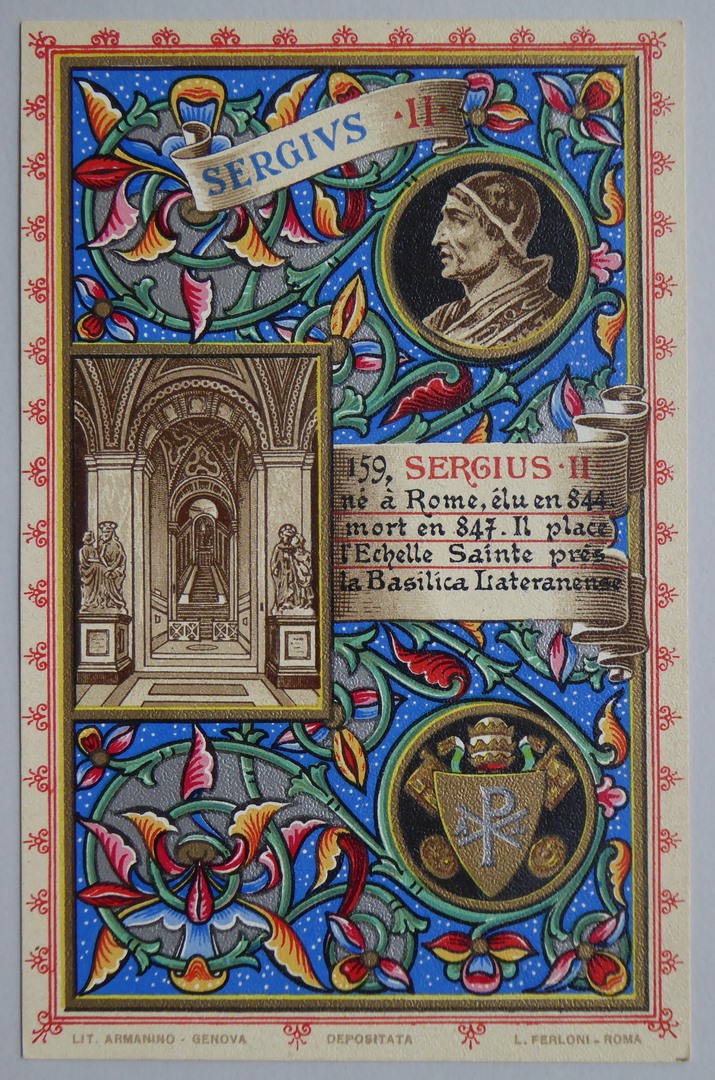 SERGIVS ·II·
159, SERGIUS·II·
né à Rome, élu en 844,
mort en 847. Il place
l'Echelle Sainte près
la Basilica Lateranense
LIT. ARMANINO - GENOVA DEPOSITATA L. FERLONI - ROMA